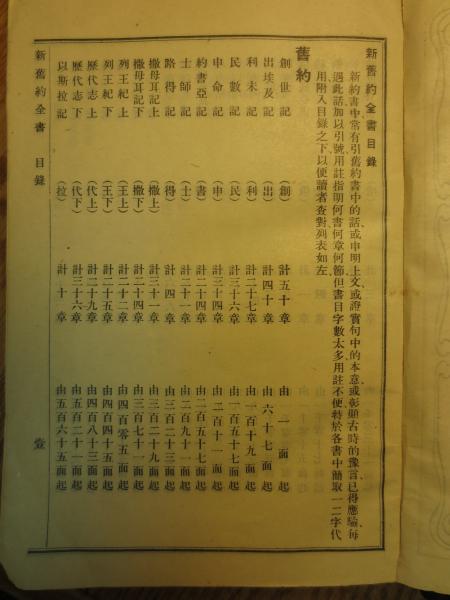 新舊約全書目錄
新約書中常有引舊約書中的話或申明上文或證實句中的本意或彰顯古時的豫言已得應驗每
遇此話加以引號用註指明何書何章何節但書目字數太多用註不便特於各書中簡取一二字代
用附入目錄之下以便讀者查對列表如左
舊約
創世記 (創) 計五十章 由一面起
出埃及記 (出) 計四十章 由六十七面起
利未記 (利) 計二十七章 由一百十九面起
民數記 (民) 計三十六章 由一百五十七面起
申命記 (申) 計三十四章 由二百十一面起
約書亞記 (書) 計二十四章 由二百五十七面起
士師記 (士) 計二十一章 由二百九十一面起
路得記 (得) 計四章 由三百二十三面起
撒母耳記上 (撒上) 計三十一章 由三百二十九面起
撒母耳記下 (撒下) 計二十四章 由三百六十七面起
列王紀上 (王上) 計二十二章 由四百零五面起
列王紀下 (王下) 計二十五章 由四百四十五面起
歷代志上 (代上) 計二十九章 由四百八十三面起
歷代志下 (代下) 計三十六章 由五百二十一面起
以斯拉記 (拉) 計十章 由五百六十五面起
新舊約全書 目錄 壹